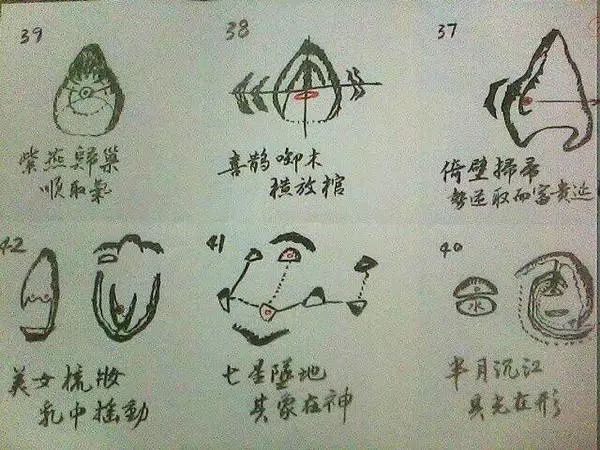 39
紫燕歸巢
順取氣
38
喜鹊啣木
橫放棺
37
倚壁掃帚
势逆取而富貴延
42
美女梳妝
乳中摇動
41
七星墜地
其象在神
40
水
半月沉江
其光在形